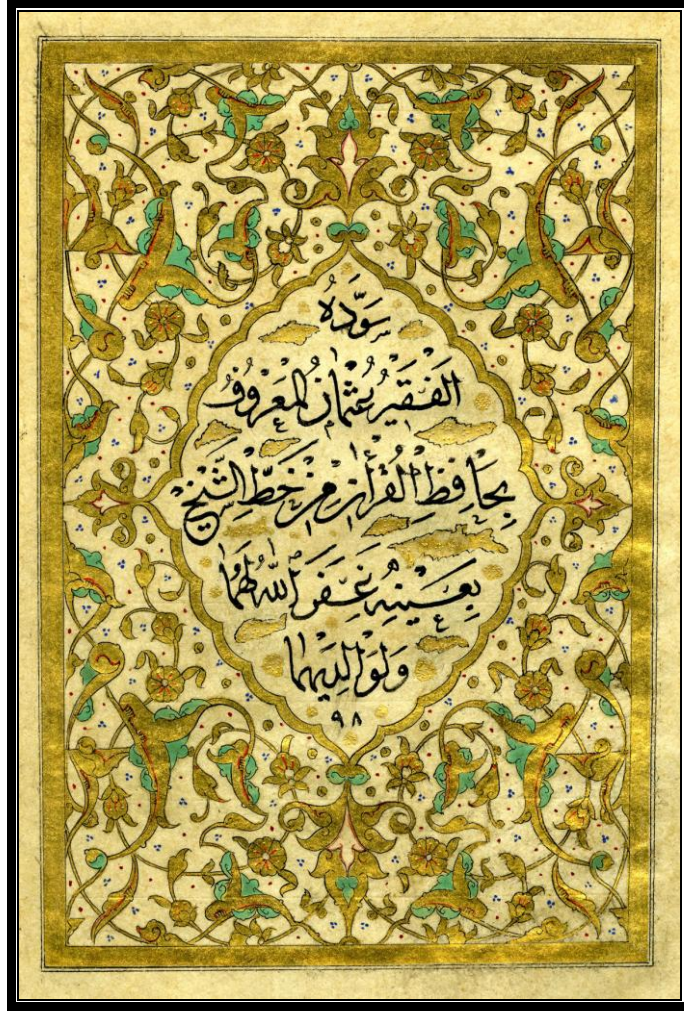 سَوَّدَهُ
الفَقِيرُ عُثْمَانُ المَعْرُوفُ
بِحَافِظِ القُرْآنِ مِنْ خَطِّ الشَّيْخِ
بِعَيْنِهِ غَفَرَ اللهُ لَهُمَا
وَلِوَالِدِيهِمَا
٩٨